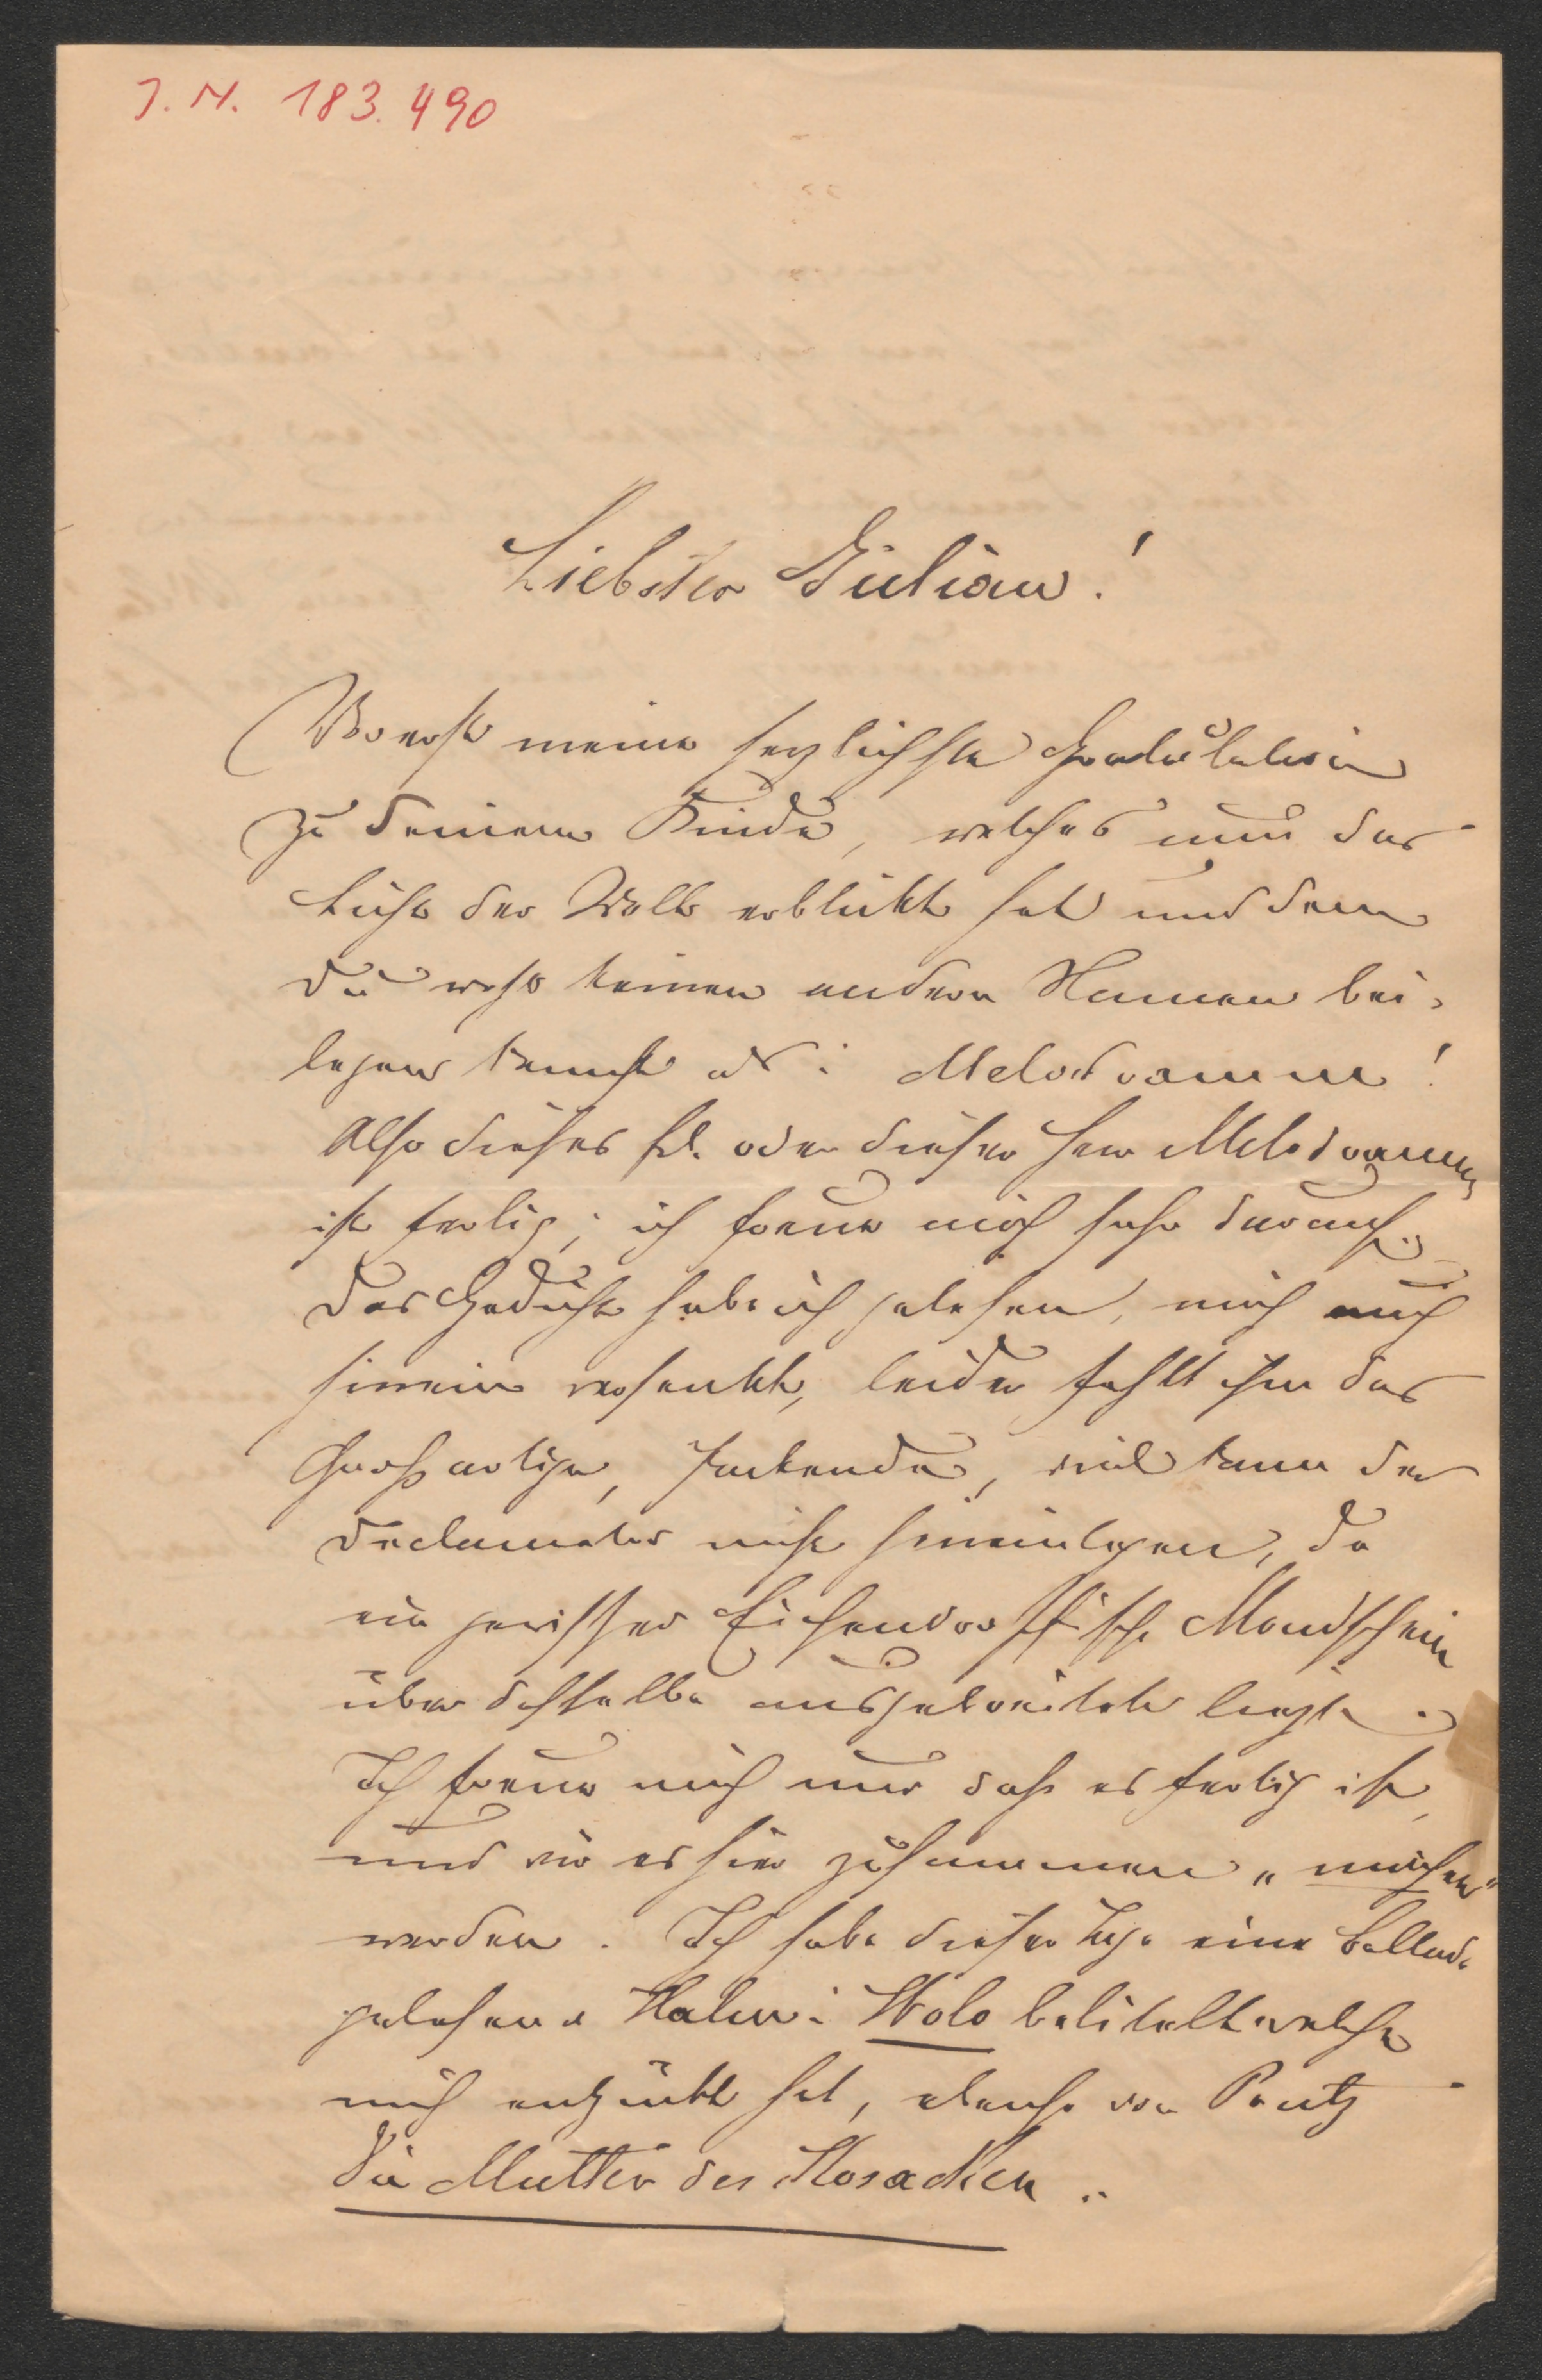 J. N. 183.490
Liebster Julian!
Vorerst meine herzlichste Gratulation
zu Deinem Kinde, welches nun das
Licht der Welt erblickt hat und dem
Du wohl keinen andern Namen bei-
legen kannst als: Melodramm!
Also dieses Frl. oder dieser Herr Melodramm
ist fertig; ich freue mich sehr darauf.
Das Gedicht habe ich gelesen, mich auch
hinein versenkt, leider fehlt ihm das
Großartige, Packende, viel kann der
Declamator nicht hineinlegen, da
ein gewisser Eichendorffische Mondschein
über dasselbe ausgebreitet liegt.
Ich freue mich nur daß es fertig ist,
und wir es hier zusammen „machen"
werden. Ich habe dieser Tage eine Ballade
gelesen v. Halm: Wolo betitelt welche
mich entzückt hat, ebenso von Prutz
Die Mutter des Kosacken..